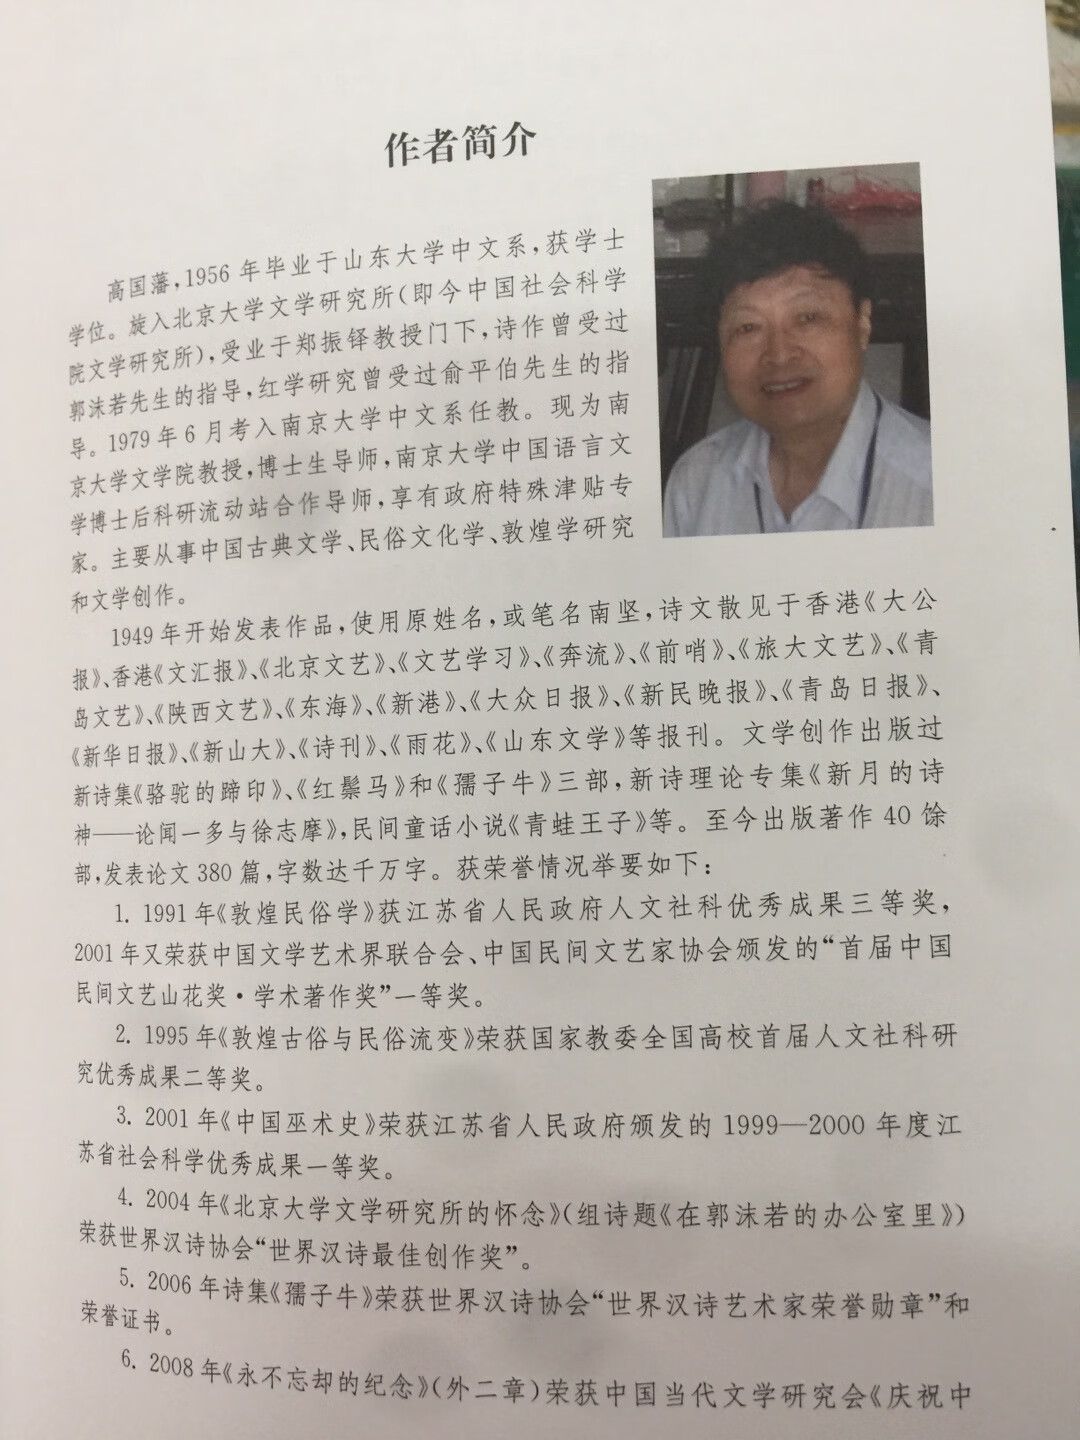 作者简介
高国藩,1956年毕业于山东大学中文系,获学士
学位。旋入北京大学文学研究所(即今中国社会科学
院文学研究所),受业于郑振铎教授门下,诗作曾受过
郭沫若先生的指导,红学研究曾受过俞平伯先生的指
导。1979年6月考入南京大学中文系任教。现为南
京大学文学院教授,博士生导师,南京大学中国语言文
学博士后科研流动站合作导师,享有政府特殊津贴专
家。主要从事中国古典文学、民俗文化学、敦煌学研究
和文学创作。
1949年开始发表作品,使用原姓名,或笔名南坚,诗文散见于香港《大公
报》、香港《文汇报》、《北京文艺》、《文艺学习》、《奔流》、《前哨》、《旅大文艺》、《青
岛文艺》、《陕西文艺》、《东海》、《新港》、《大众日报》、《新民晚报》、《青岛日报》、
《新华日报》、《新山大》、《诗刊》、《雨花》、《山东文学》等报刊。文学创作出版过
新诗集《骆驼的蹄印》、《红鬃马》和《孺子牛》三部,新诗理论专集《新月的诗
神——论闻一多与徐志摩》,民间童话小说《青蛙王子》等。至今出版著作40馀
部,发表论文380篇,字数达千万字。获荣誉情况举要如下:
1. 1991年《敦煌民俗学》获江苏省人民政府人文社科优秀成果三等奖,
2001年又荣获中国文学艺术界联合会、中国民间文艺家协会颁发的“首届中国
民间文艺山花奖·学术著作奖”一等奖。
2. 1995年《敦煌古俗与民俗流变》荣获国家教委全国高校首届人文社科研
究优秀成果二等奖。
3. 2001年《中国巫术史》荣获江苏省人民政府颁发的1999—2000年度江
苏省社会科学优秀成果一等奖。
4. 2004年《北京大学文学研究所的怀念》(组诗题《在郭沫若的办公室里》)
荣获世界汉诗协会“世界汉诗最佳创作奖”。
5. 2006年诗集《孺子牛》荣获世界汉诗协会“世界汉诗艺术家荣誉勋章”和
荣誉证书。
6. 2008年《永不忘却的纪念》(外二章)荣获中国当代文学研究会《庆祝中